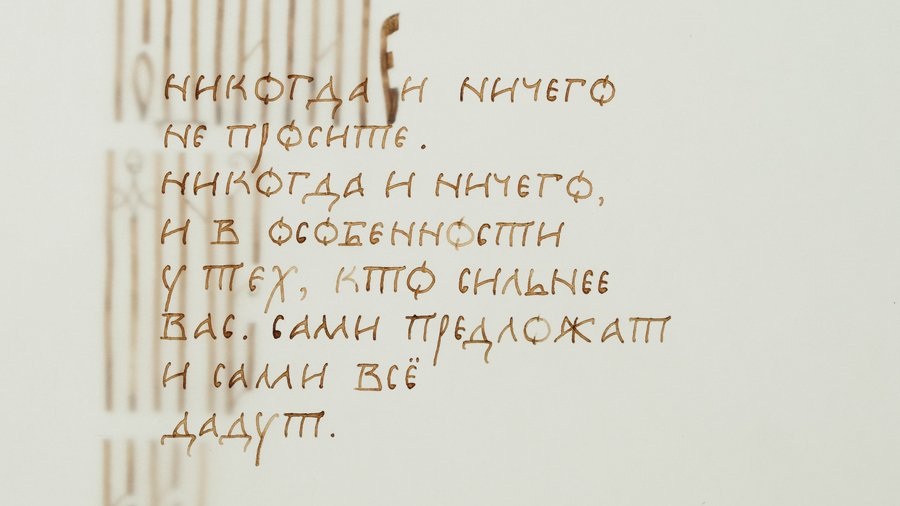 никогда и ничего
не просите.
никогда и ничего,
и в особенности
у тех, кто сильнее
вас. сами предложат
и сами всё
дадут.